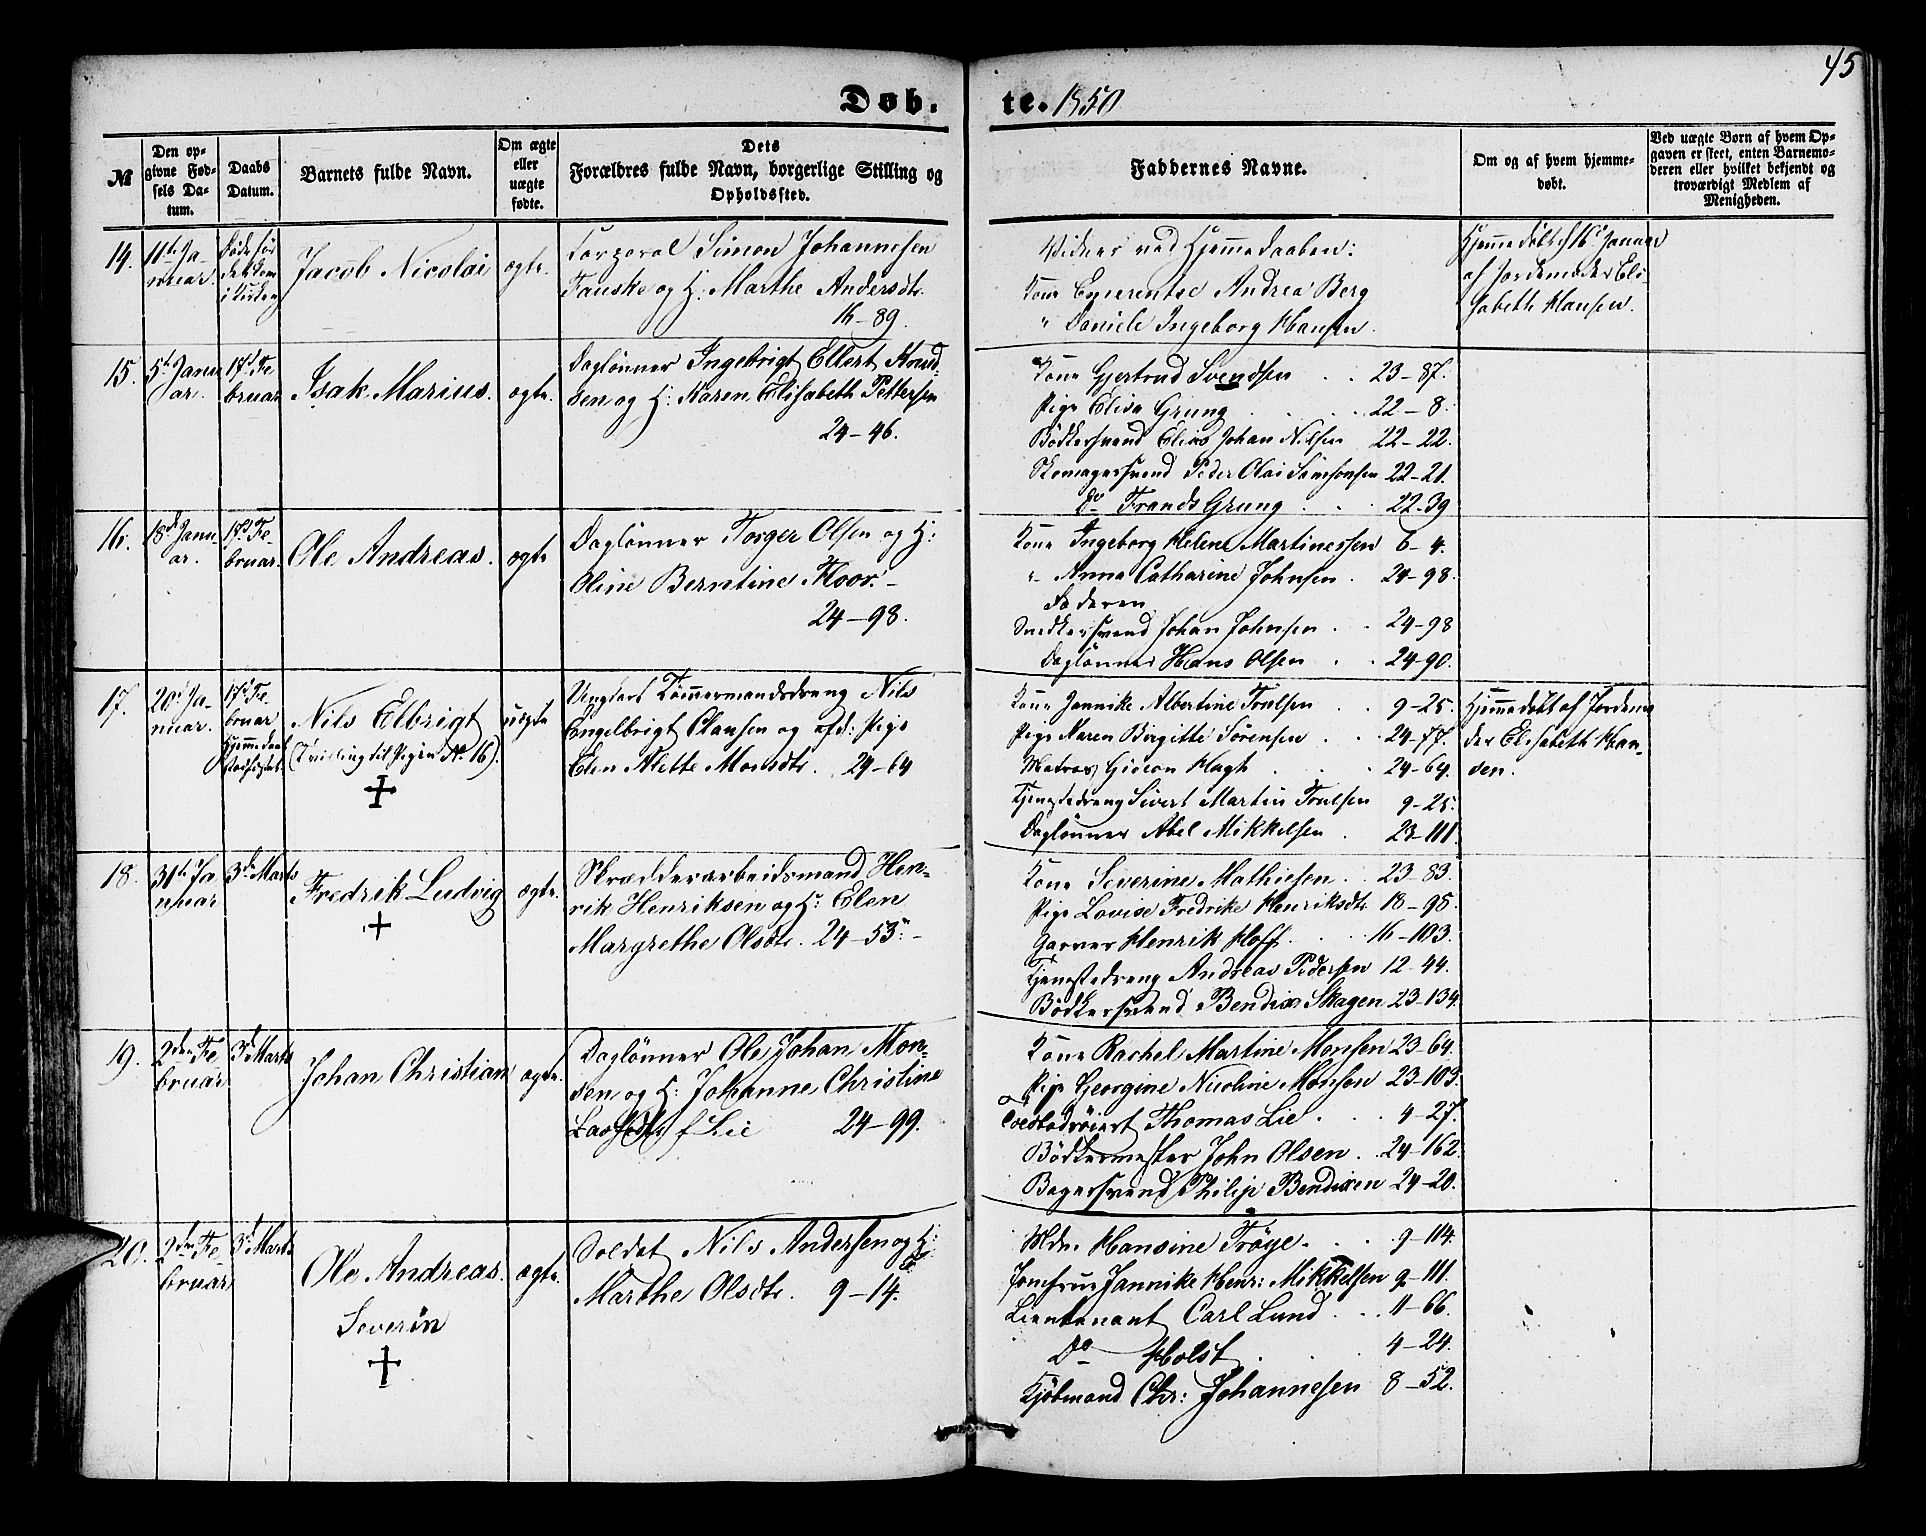 45
Døb. te. 1850
№
Den opgivne Fødsels Datum.
Daabs Datum.
Barnets fulde Navn.
Om ægte eller uægte fødte.
Dets Forældres fulde Navn, borgerlige Stilling og Opholdssted.
Faddernes Navne.
Om og af hvem hjemmedøbt.
Ved uægte Børn af hvem Opgaven er skeet, enten Barnemoderen eller hvilket bekjendt og troværdigt Medlem af Menigheden.
14.
11te Januar.
Døde før
i Kirken
Jacob Nicolai
ægte.
Corporal Simon Johannesen
Fauske og H: Marthe Andersdtr.
16-89.
Vidner ved Hjemmedaaben:
Kone Emerentse Andrea Berg
" Daniele Ingeborg Hansen.
Hjemmedøbt d. 16de Januar
af Jordemoder Eli-
sabeth Hansen.
15.
5te Janu
ar.
17d Fe
bruar
Isak Marius.
ægte.
Dagløner Ingebrigt Ellert Knud-
sen og H: Karen Elisabeth Pettersen
24-46.
Kone Gjertrud Svendsen . . 23-87.
Pige Elisa Grung . . . 22-8.
Bødkersvend Elias Johan Nilsen 22-22.
Skomagersvend Peder Olai Simonsen 22-21.
Do Frands Grung . . . 22-39
16.
18de Janu
ar.
17d Fe-
bruar.
Ole Andreas.
ægte
Dagløner Torger Olsen og H:
Oline Berntine Floor.-
24-98.
Kone Ingeborg Helene Martinessen 6-4.
" Anna Catharine Johnsen . 24-98.
Faderen
Snedkersvend Johan Johnsen . . 24-98
Dagløner Hans Olsen . . 24-90.
17.
20de Ja-
nuar.
17d Fe-
bruar
Hjemmedaab
stadfæstet.
Nils Elbrigt
(Tvilling til Pigen No 16).
uægte
Ungkarl Tømmermandsdreng Nils
Engelbrigt Clausen og afd: Pige
Elen Mette Monsdtr. 24-64
Kone Jannike Albertine Troelsen . . 9-25.
Pige Karen Birgitte Sörensen . . . 24-77.
Matros Gideon Hagh . . . 24-64.
Tjenestedreng Sivert Martin Troelsen 9-25.
Dagløner Abel Mikkelsen . 23-111.
Hjemmedøbt af Jordemo
der Elisabeth Han-
sen.
18.
31te Ja
nuar
3de Marts
Fredrik Ludvig
ægte.
Skrædderarbeidsmand Hen-
rik Henriksen og H: Elen
Margrethe Olsdtr. 24-53.-
Kone Severine Mathiesen . . 23-83.
Pige Lovise Fredrike Henriksdtr. 18-95.
Garver Henrik Hoff. . . . 16-103.
Tjenestedreng Andreas Pedersen 12-44.
Bødkersvend Bendix Skagen 23-134.
19.
2den Fe
bruar
3d Marts
Johan Christian
ægte.
Dagløner Ole Johan Mon-
sen og H: Johanne Christine
f Lie 24-99.
Kone Rachel Martine Monsen 23-64.
Pige Georgine Nicoline Monsen 23-103.
Thomas Lie . . . 4-27.
Bødkermester John Olsen . . 24-162.
Bagersvend Philip Bendixen 24-20.
20.
2den Fe-
bruar
3d Marts
Ole Andreas.
Severin
ægte.
Soldat Nils Andersen og H:
Marthe Olsdtr. 9-14.
Mdm. Hansine Trøye. . . . 9-114.
Jomfrue Jannike Henr: Mikkelsen 9-111.
Lieutenant Carl Lund . . . 11-66.
Do Holst . . 4-24.
Kjøbmand Chr: Johannesen 8-52.